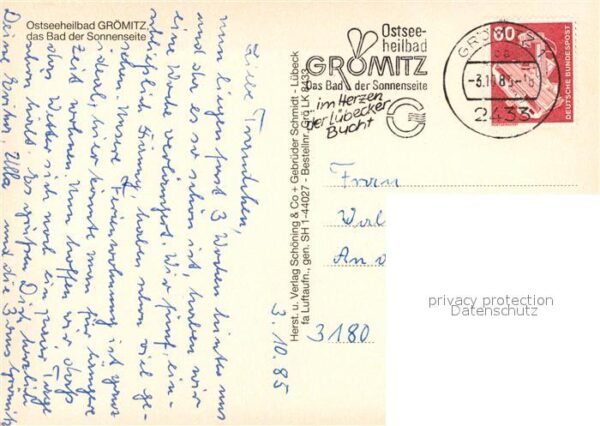 Ostseeheilbad GRÖMITZ,
das Bad der Sonnenseite
Ostsee-
heilbad
GRÖMITZ
Das Bad der Sonnenseite
im Herzen
der Lübecker
Bucht
GRÖ
-3.10.85-18
2433
60
DEUTSCHE BUNDESPOST
Herst. u. Verlag Schöning & Co + Gebrüder Schmidt - Lübeck
fa Luftaufn., gen. SH 1-44027 - Bestellnr. Grö LK 8433
3.10.85
nun liegen fast 3 Wochen hinter uns
und da es so schön ist, haben wir
eine Woche verlängert. Wir fünf, ein-
schließlich haben schon viel ge-
Unsere Ferienwohnung ist ganz
ideal, hier könnte man für längere
Zeit wohnen. Nun hoffen wir, daß
das Wetter sich noch ein paar Tage
hält, so grüßen Dich herzlich
Deine Ulla und die 3 aus Grömitz
Frau
Wal
An d
3180
privacy protection
Datenschutz